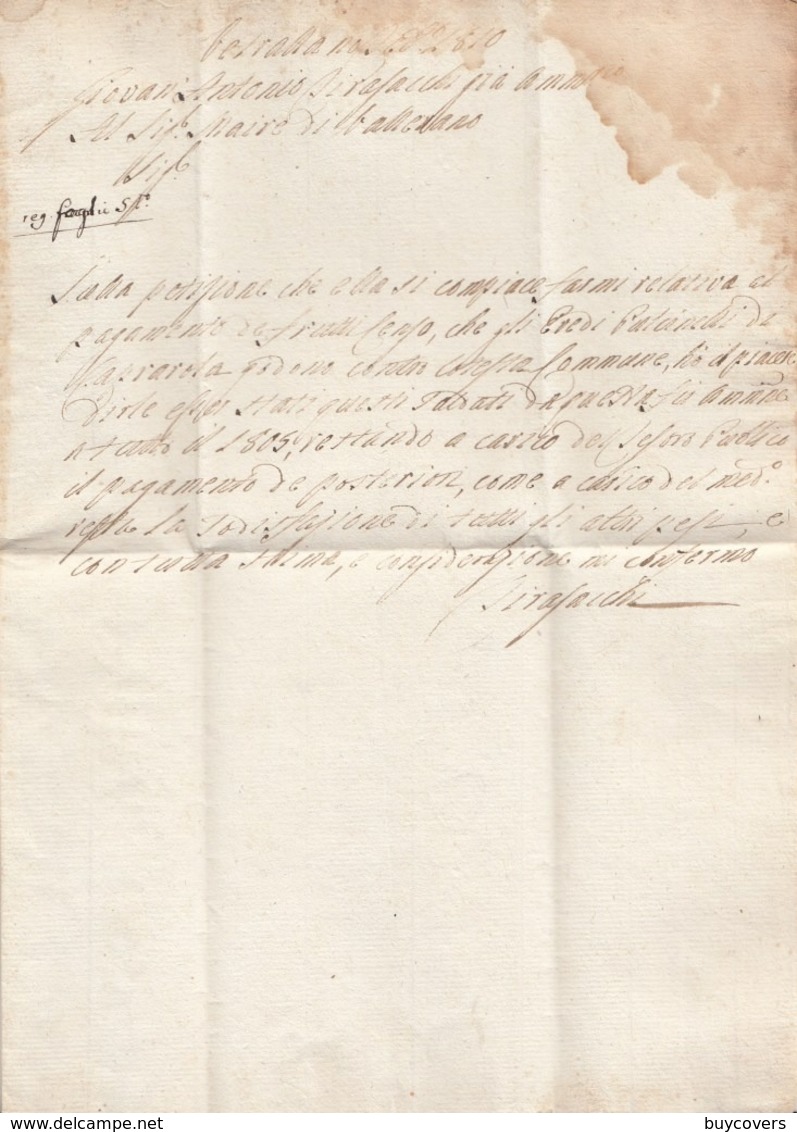 Vetralla 1810
Giovan Antonio Pirasacchi già Ammre
Al Sigr. Maire di Vallerano
Sigr.
reg. fogli
Sulla petizione che ella si compiace farmi relativa al
pagamento de frutti Censo, che gli Eredi di
Caprarola godono contro Cotesta Commune, hò il piacere
Dirle esser stati questi Saldati da questa
a tutto il 1809, restando a carico del Tesoro Pubblico
il pagamento de posteriori, come a carico del medo.
resta la sodisfazione di tutti gli altri pesi, e
con tutta stima, e considerazione mi confermo
Pirasacchi
buycovers